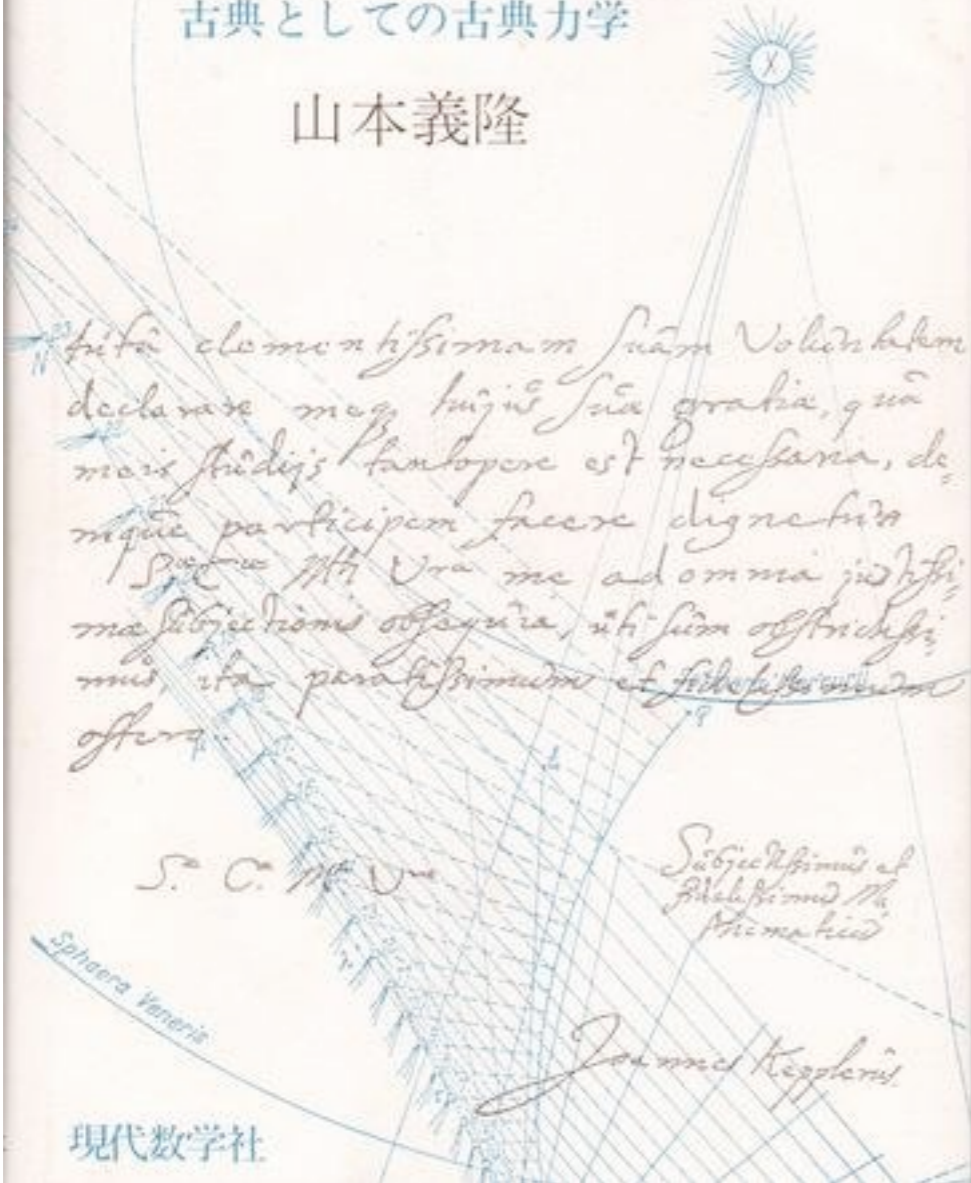 古典としての古典力学
山本義隆
clementissimam suam Voluntatem
declarare meq, huijus suæ gratiæ, quâ
meis studijs tantopere est necessaria, de=
nique participem facere dignetur
me ad omnia justissi=
mæ subjectionis obsequia, uti sum obstrictissi=
mus, ita paratissimum et fidelissimum
offero.
S. C. Mtis Vræ
Subjectissimus et
fidelissimus Ma
thematicus
Joannes Kepplerus
Sphaera Veneris
現代数学社